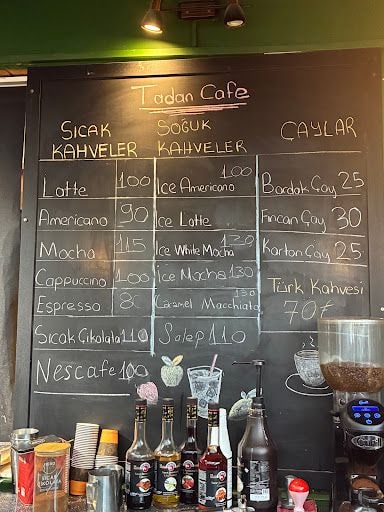 Tadan Cafe
SICAK KAHVELER
Latte 100
Americano 90
Mocha 115
Cappuccino 100
Espresso 80
Sıcak Çikolata 110
Nescafe 100
SOĞUK KAHVELER
Ice Americano 100
Ice Latte
Ice White Mocha 120
İce Mocha 130
Caramel Macchiato 130
Salep 110
ÇAYLAR
Bardak Çay 25
Fincan Çay 30
Karton Çay 25
Türk Kahvesi
70₺
SICAK
ÇİKOLATA